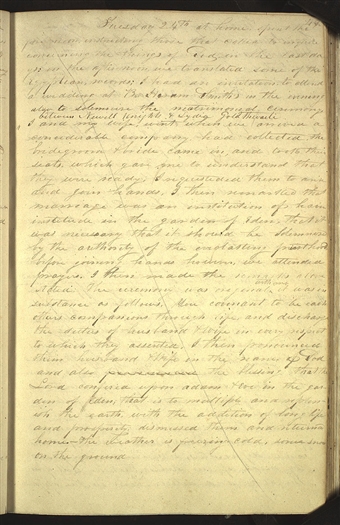 Tuesday 24th at home. spent the
forenoon instructing those that called to inquire
concerning the things of God, in the last days
in the afternoon, we translated some of the
Egyptian records; I had an invitation to attend
a wedding at Br. Hiram Smith's in the evening
also to solemnize the matrimonial ceremony
between Newell Knight & Lydia Goldthwaite
I and my wife, went, when we arrived a
considerable company, had collected, the
bridegroom & bride came in, and took their
seats, which gave me to understand that
they were ready, I requested them to arise
and join hands, I then remarked that
marriage was an institution of heaven
instituted in the garden of Eden, that it
was necessary that it should be solemnized
by the authority of the everlasting priesthood
before joining hands however, we attended
prayers. I then made the remarks above
stated. The ceremony was original with me it was in
substance as follows, You covenant to be each
others companions through life, and discharge
the duties of husband & wife in every respect
to which they assented. I then pronounced
them husband & wife in the name of God
and also the blessings that the
Lord confered upon adam & Eve in the gar-
den of Eden, that is to multiply and replen-
ish the earth, with the addition of long life
and prosperity; dismissed them and returned
home.— The weather is freezing cold, some snow
on the ground